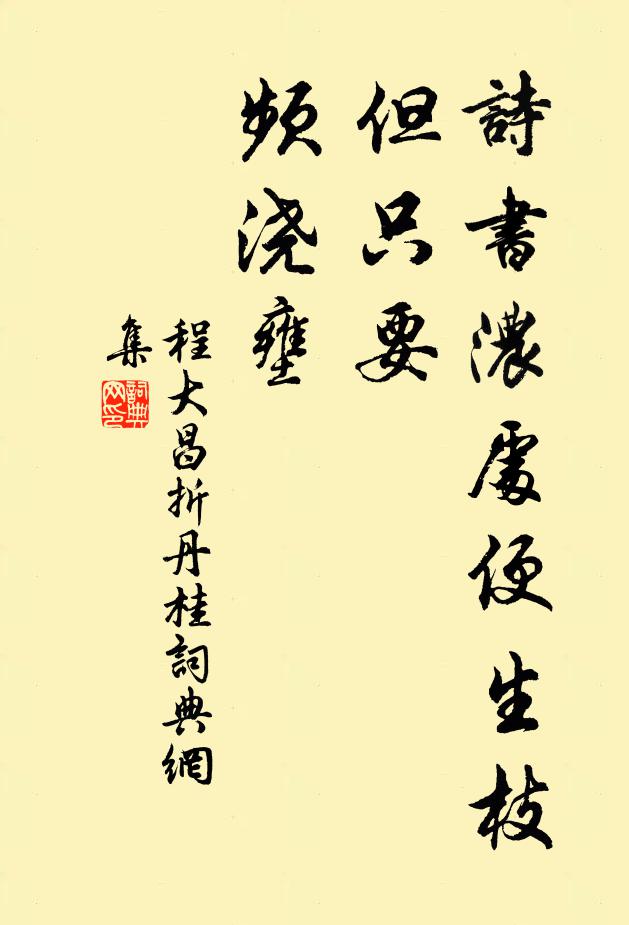 詩書濃處便生枝
但只要
頻浇壅
程大昌折丹桂詞典網
集
詞典网印